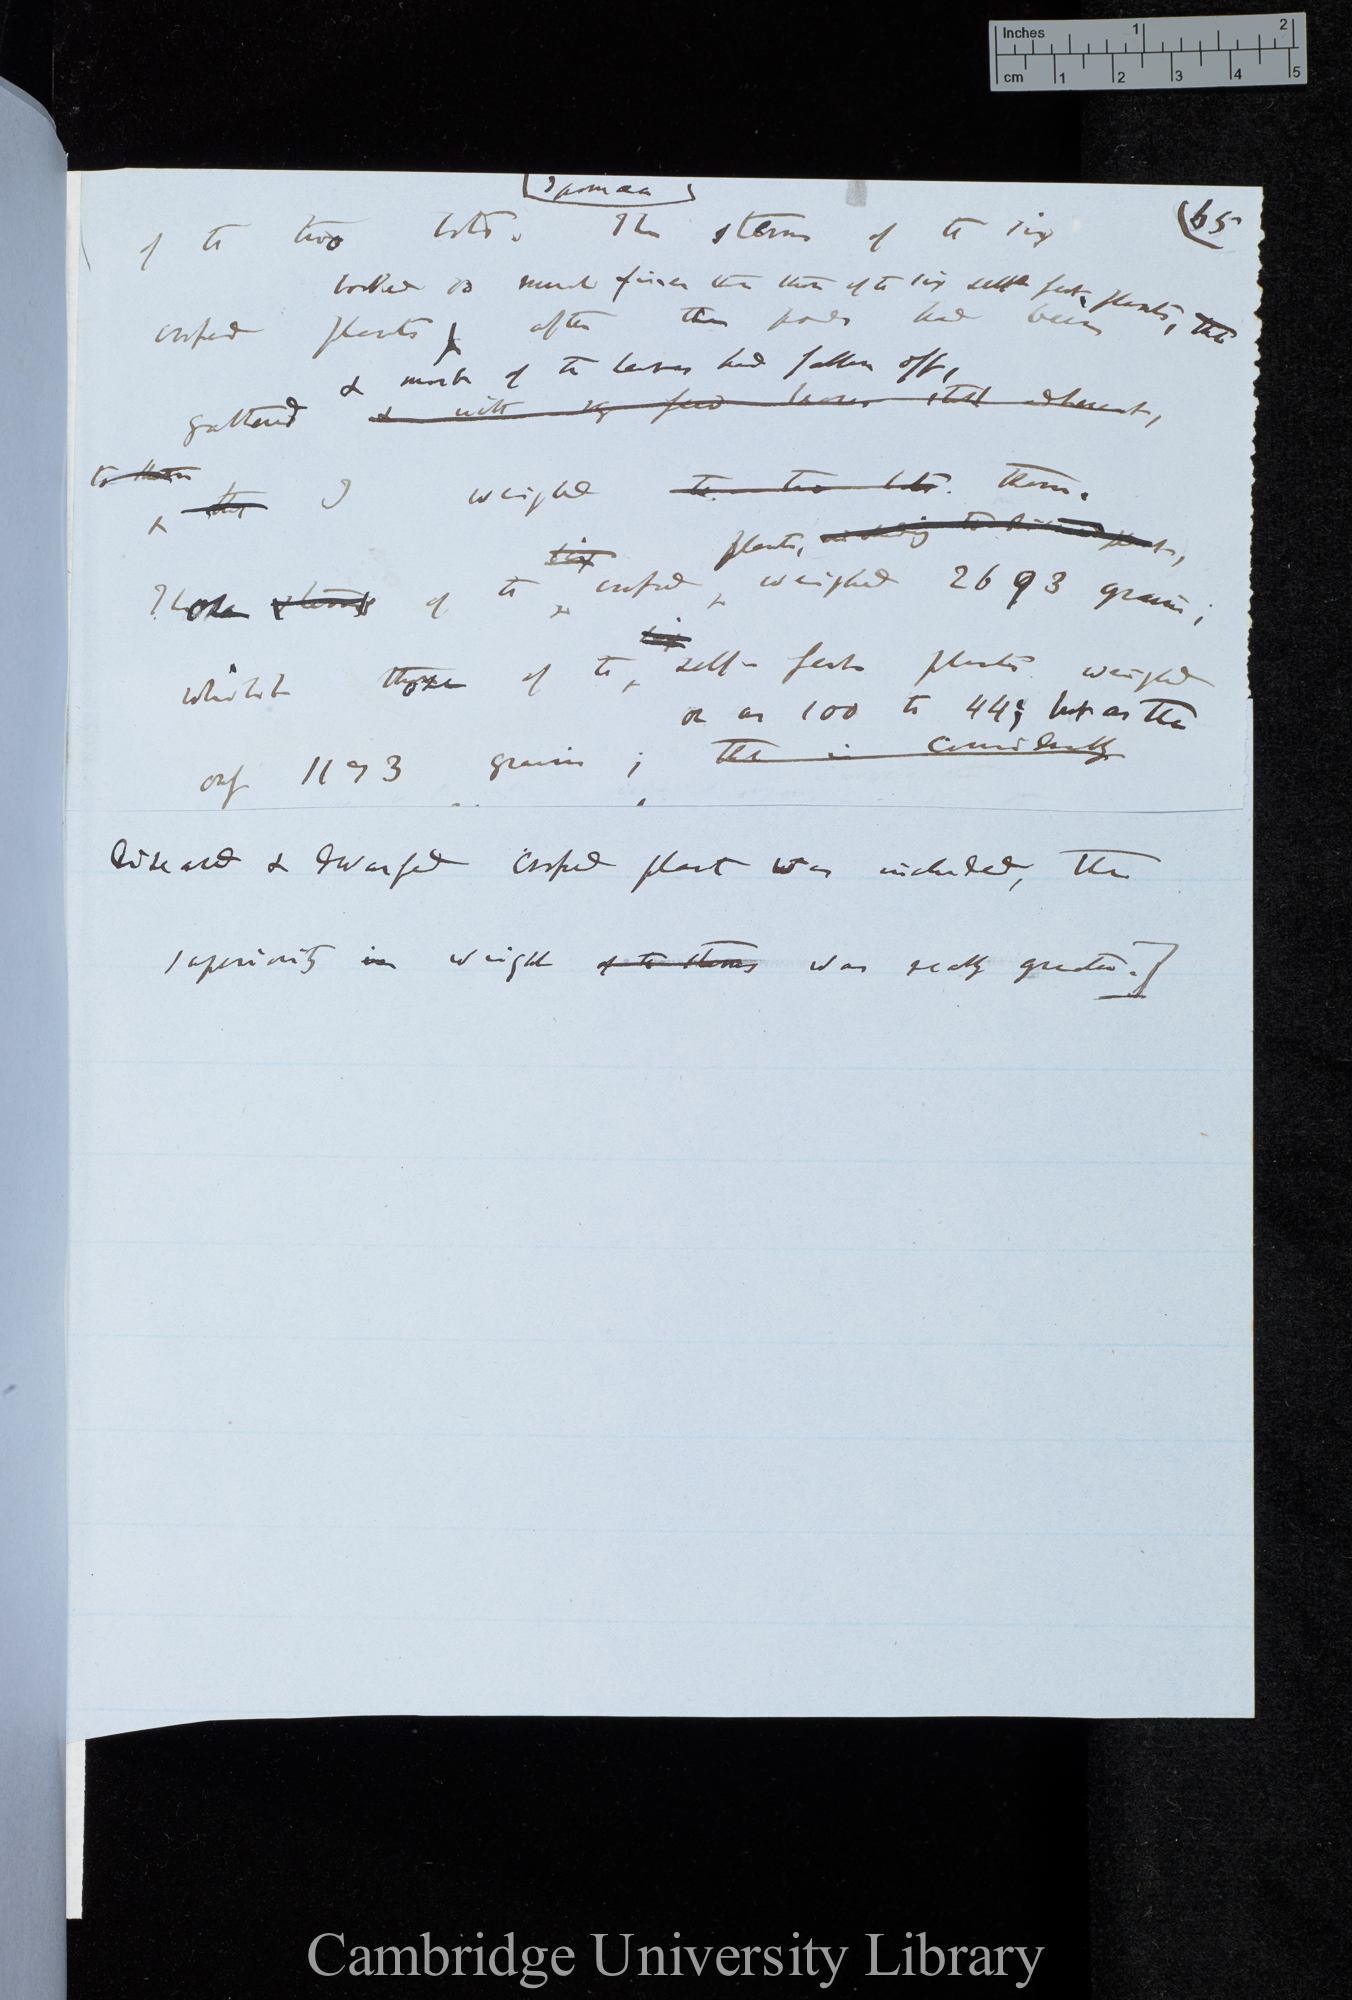 Inches 1 2
cm 1 2 3 4 5
Ipomœa
(65
of the two lots. The stems of the six
looked so much finer than those of the six self-fert. plants, that
crossed plants after the pods had been
& most of the leaves had fallen off,
gathered & with very few leaves still adherent,
to them
I weighed the two lots. them.
six plants,
Those stems of the crossed weighed 2693 grains;
six
whilst those of the self-fert plants weighed
or as 100 to 44; but as the
only 1173 grains; this is considerably
diseased & dwarfed crossed plant was included, the
superiority in weight of the stems was really greater.]
Cambridge University Library